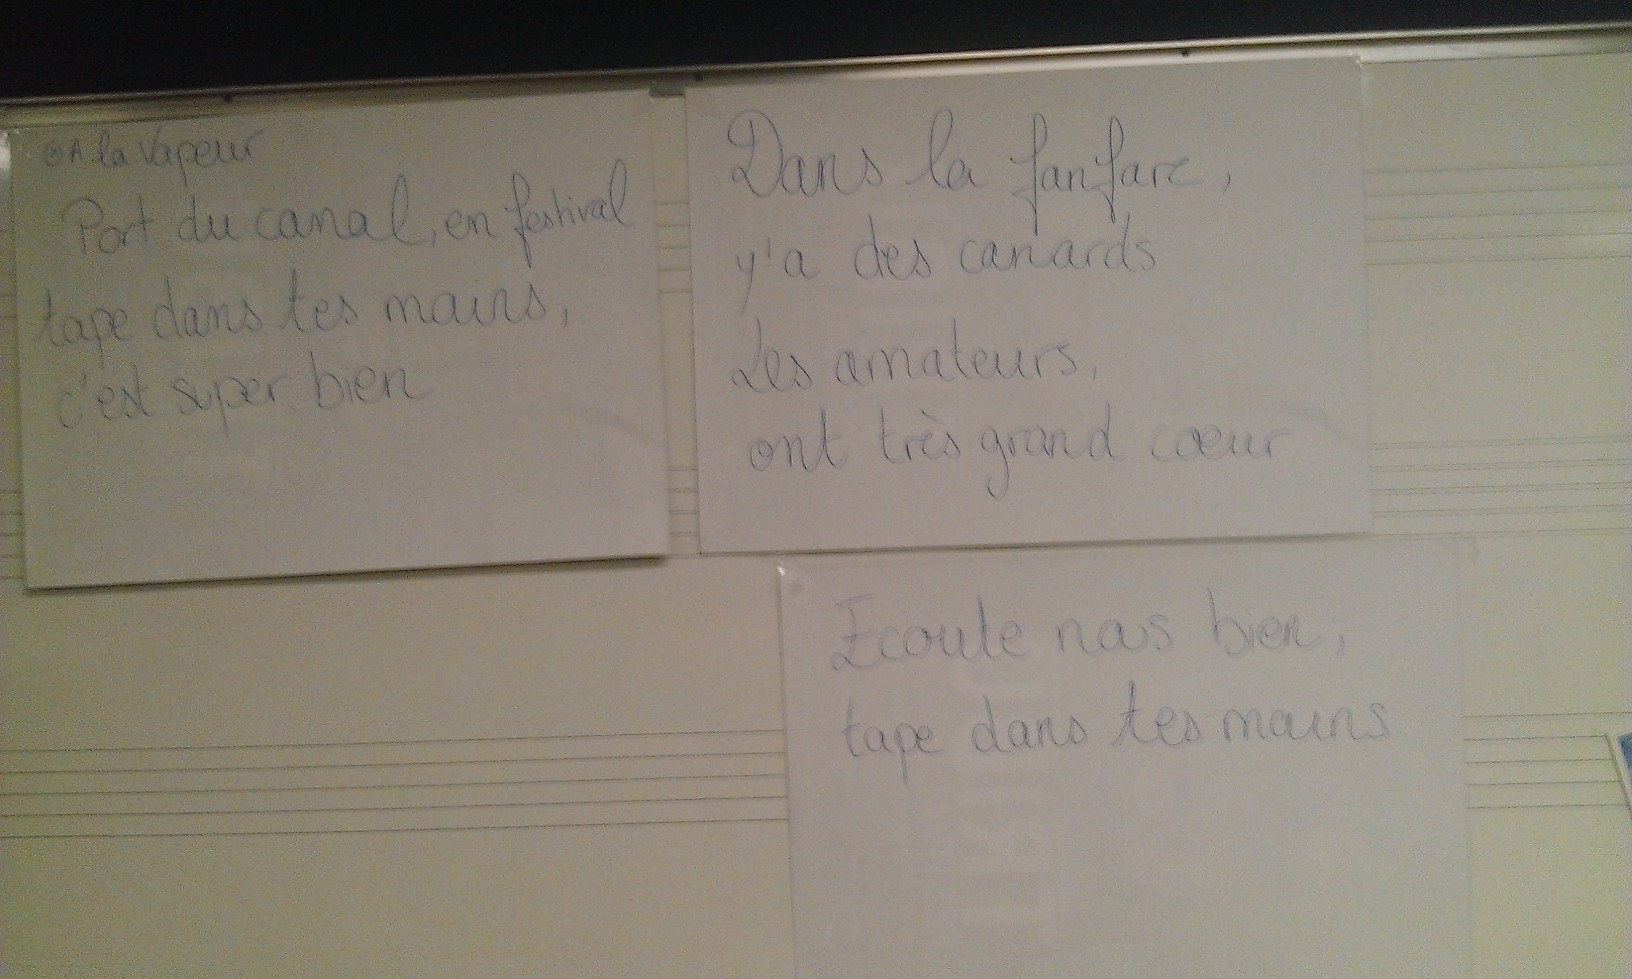 A la Vapeur
Port du canal, en festival
tape dans tes mains,
c'est super bien
Dans la fanfare,
y'a des canards
Les amateurs,
ont très grand cœur
Ecoute nous bien,
tape dans tes mains